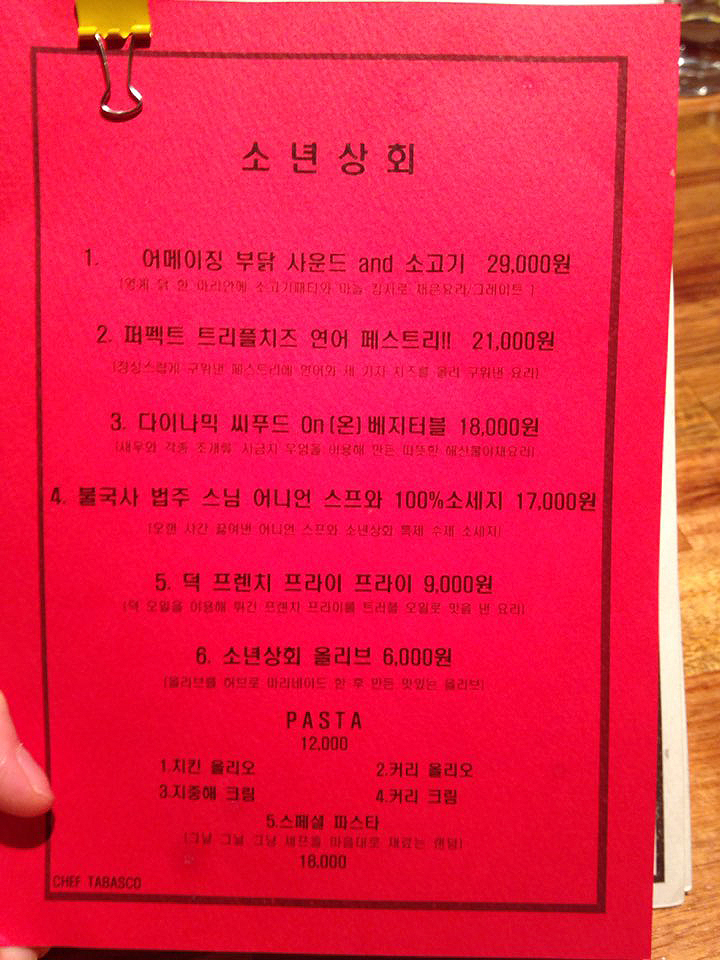 소년상회
1. 어메이징 부닭 사운드 and 소고기 29,000원
(영계 닭 한 마리안에 소고기패티와 마늘 감자로 채운요리/그레이트 )
2. 퍼펙트 트리플치즈 연어 페스트리!! 21,000원
(정성스럽게 구워낸 페스트리에 연어와 세 가지 치즈를 올려 구워낸 요리)
3. 다이나믹 씨푸드 On(온)베지터블 18,000원
(새우와 각종 조개류, 시금치 우엉을 이용해 만든 따뜻한 해산물야채요리)
4. 불국사 법주 스님 어니언 스프와 100%소세지 17,000원
(오랜 시간 끓여낸 어니언 스프와 소년상회 특제 수제 소세지)
5. 덕 프렌치 프라이 프라이 9,000원
(덕 오일을 이용해 튀긴 프렌차 프라이를 트러플 오일로 맛을 낸 요리)
6. 소년상회 올리브 6,000원
(올리브를 허브로 마리네이드 한 후 만든 맛있는 올리브)
PASTA
12,000
1.치킨 올리오 2.커리 올리오
3.지중해 크림 4.커리 크림
5.스페셜 파스타
(그날 그날 그냥 셰프들 마음대로 재료는 랜덤)
18,000
CHEF TABASCO